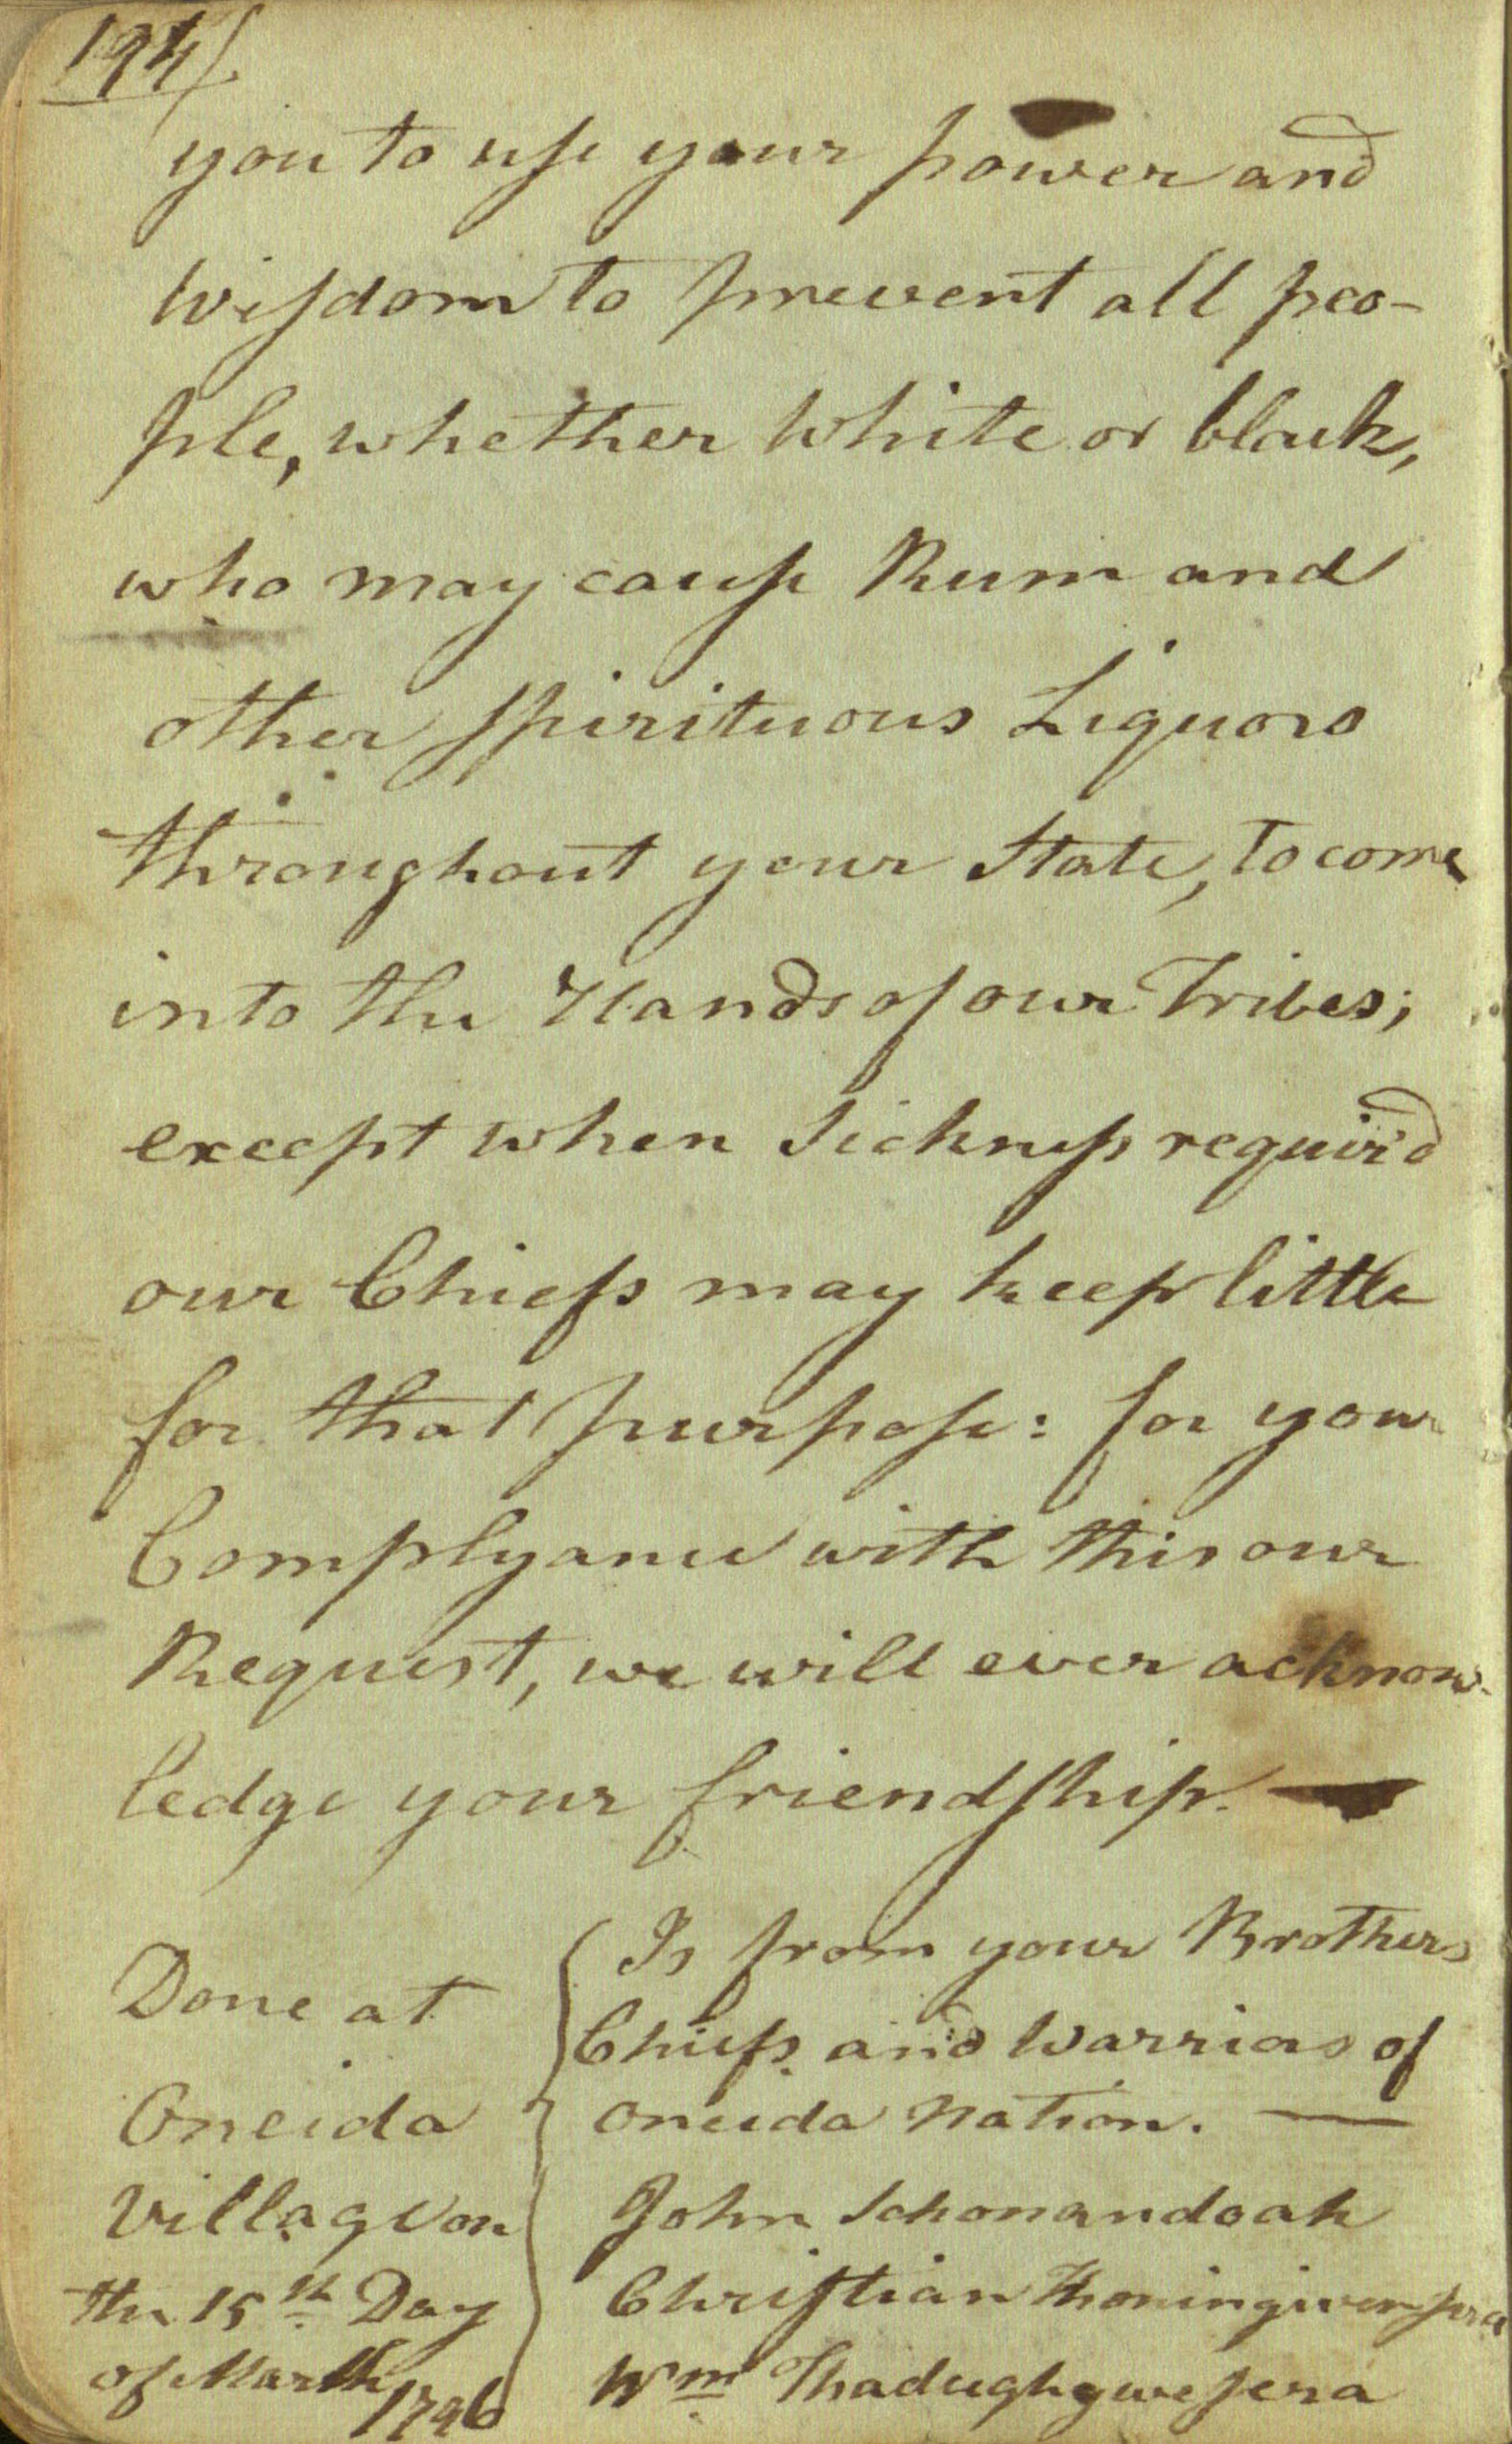 194/
you to use your power and
Wisdom to prevent all peo-
ple, whether White or black,
who may cause Rum and
other spirituous Liquors
throughout your State, to come
into the Hands of our Tribes;
except when Sickness requir'd
our Chiefs may keep little
for that purpose: for your
Complyance with this our
Request, we will ever acknow-
ledge your friendship. —
Done at
Oneida
Village on
the 15th Day
of March
1796
Is from your Brothers
Chiefs and Warriors of
Oneida Nation. —
John Schonandoah
Christian
Wm Thadughgwesera